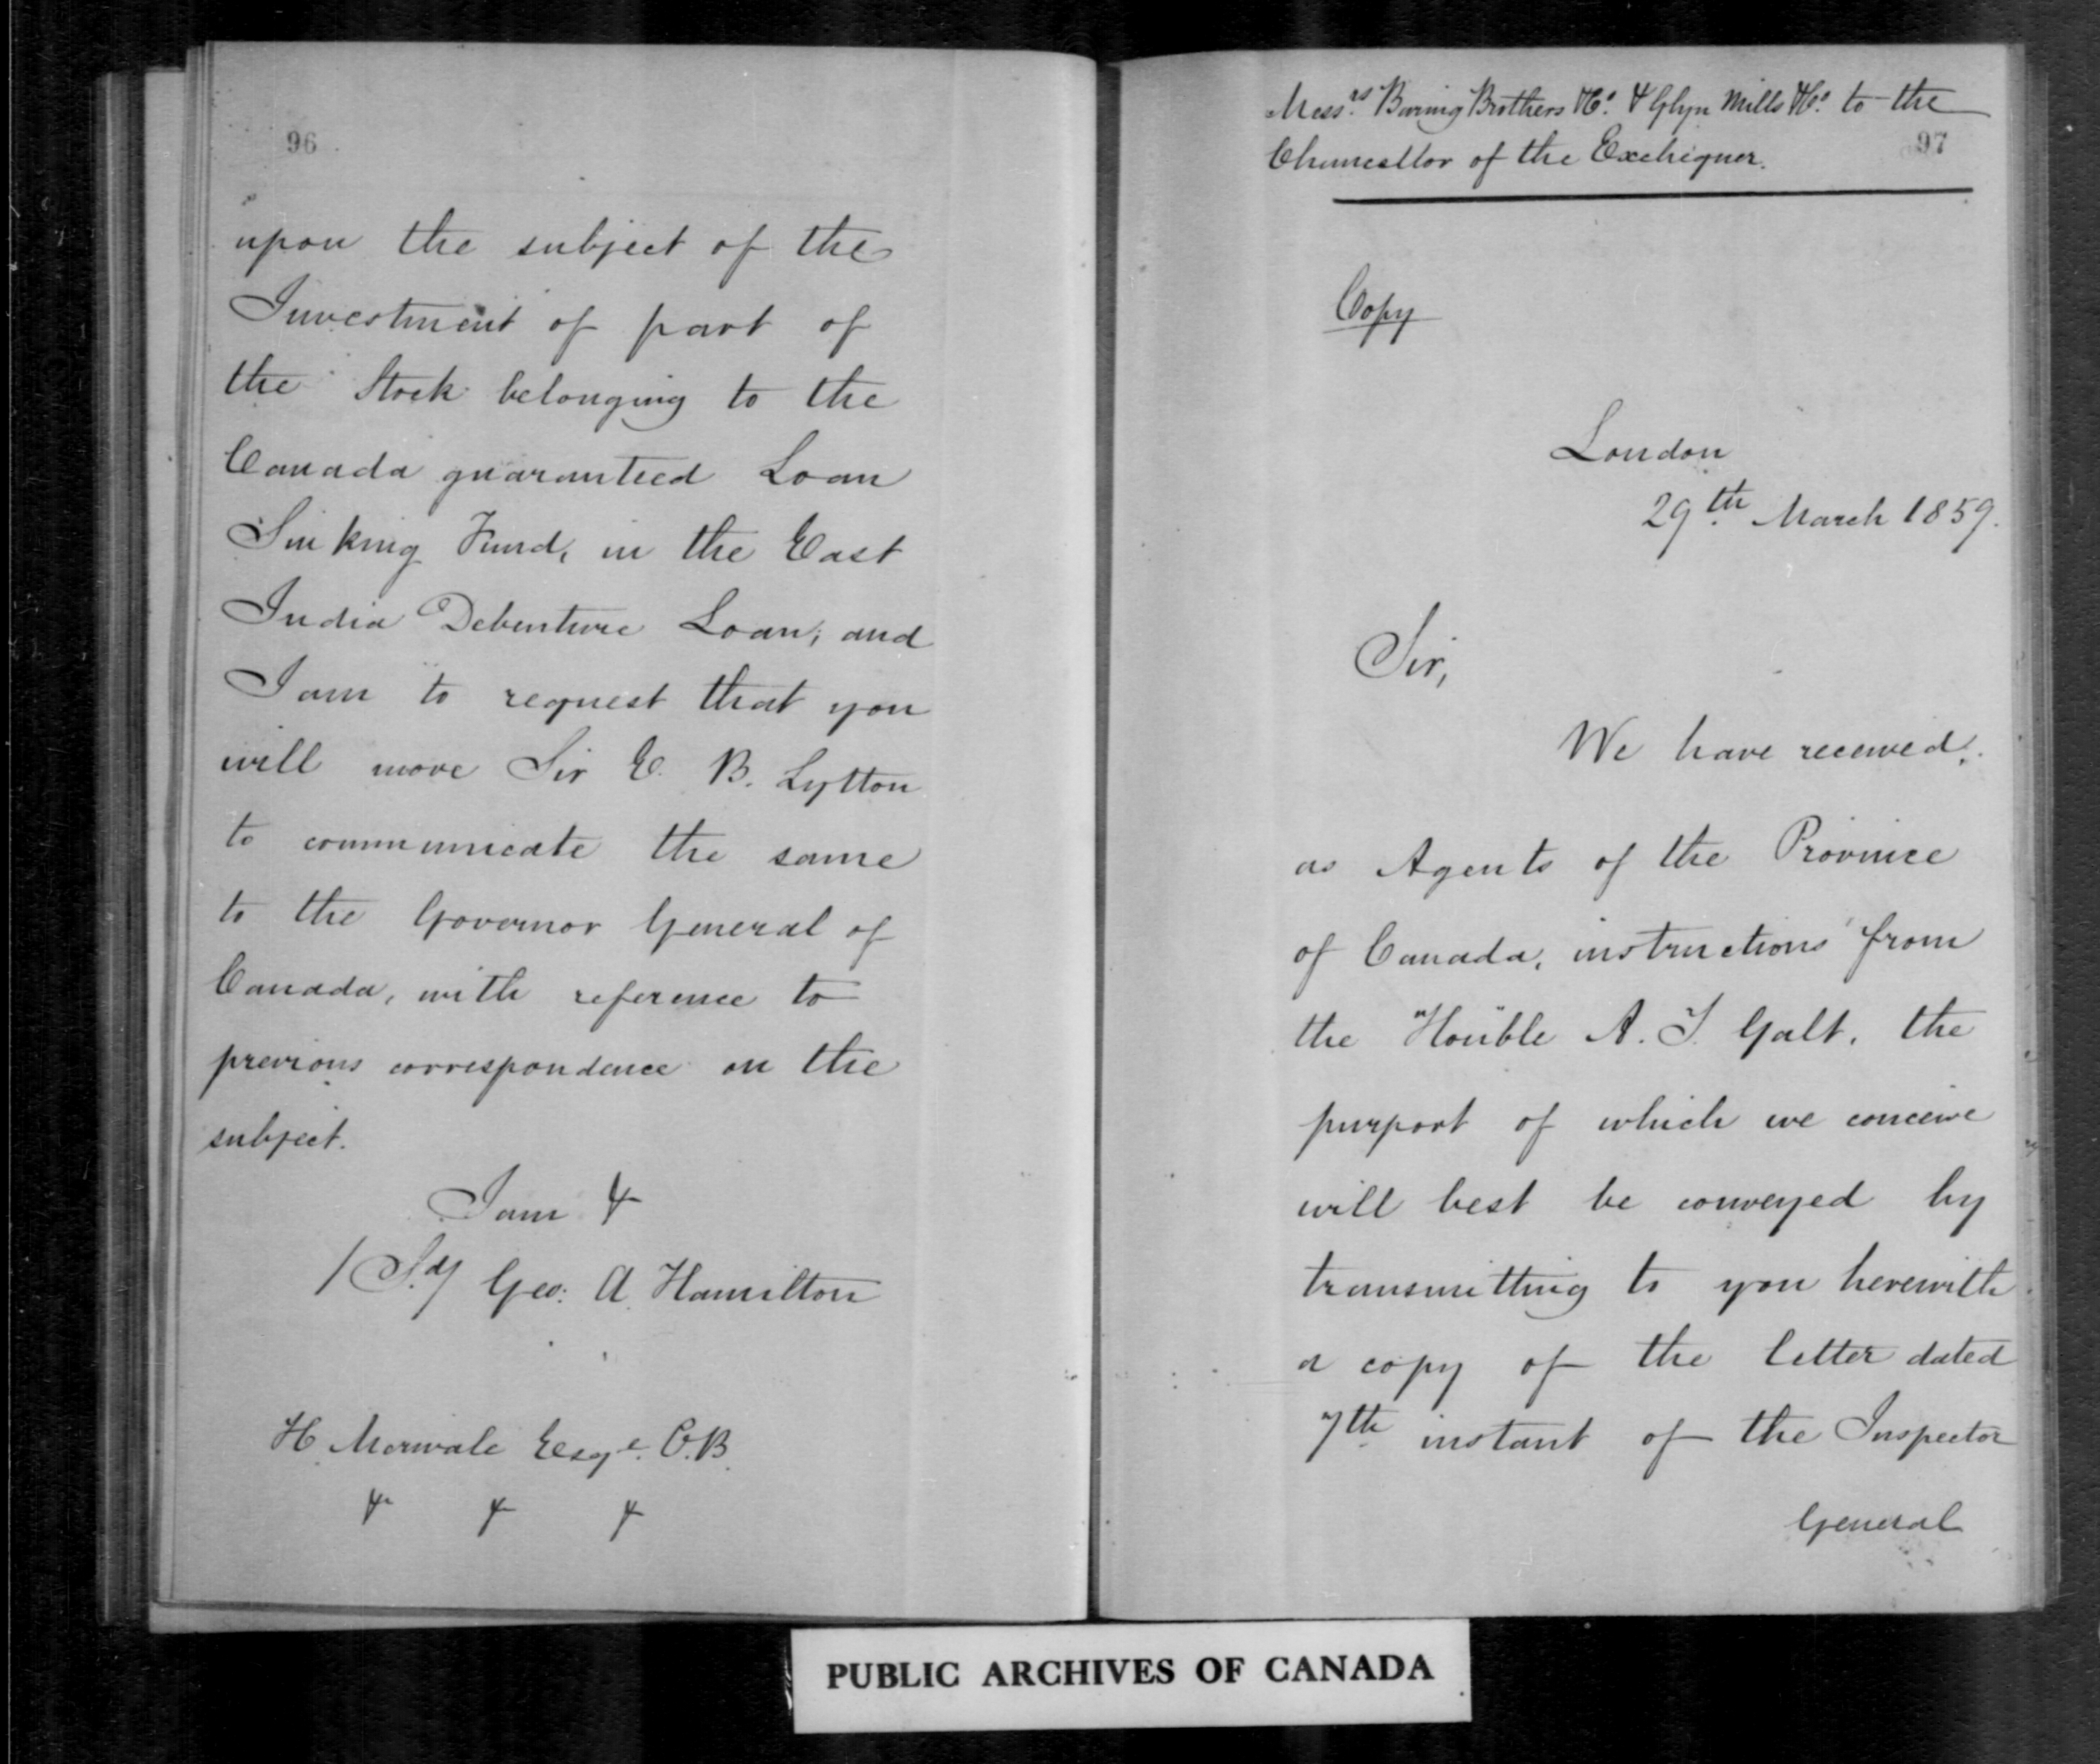 96
upon the subject of the
Investment of part of
the Stock belonging to the
Canada guaranteed Loan
Sinking Fund, in the East
India Debenture Loan; and
I am to request that you
will move Sir E. B. Lytton
to communicate the same
to the Governor General of
Canada, with reference to
previous correspondence on the
subject.
I am &
/Sd/ Geo: A. Hamilton
H. Merivale Esqre. C.B.
& & &
Messrs. Baring Brothers &Co. & Glyn Mills &Co. to the
97
Chancellor of the Exchequer.
Copy
London
29th March 1859.
Sir,
We have received,
as Agents of the Province
of Canada, instructions from
the Honble A. T. Galt, the
purport of which we conceive
will best be conveyed by
transmitting to you herewith
a copy of the letter dated
7th instant of the Inspector
General
PUBLIC ARCHIVES OF CANADA